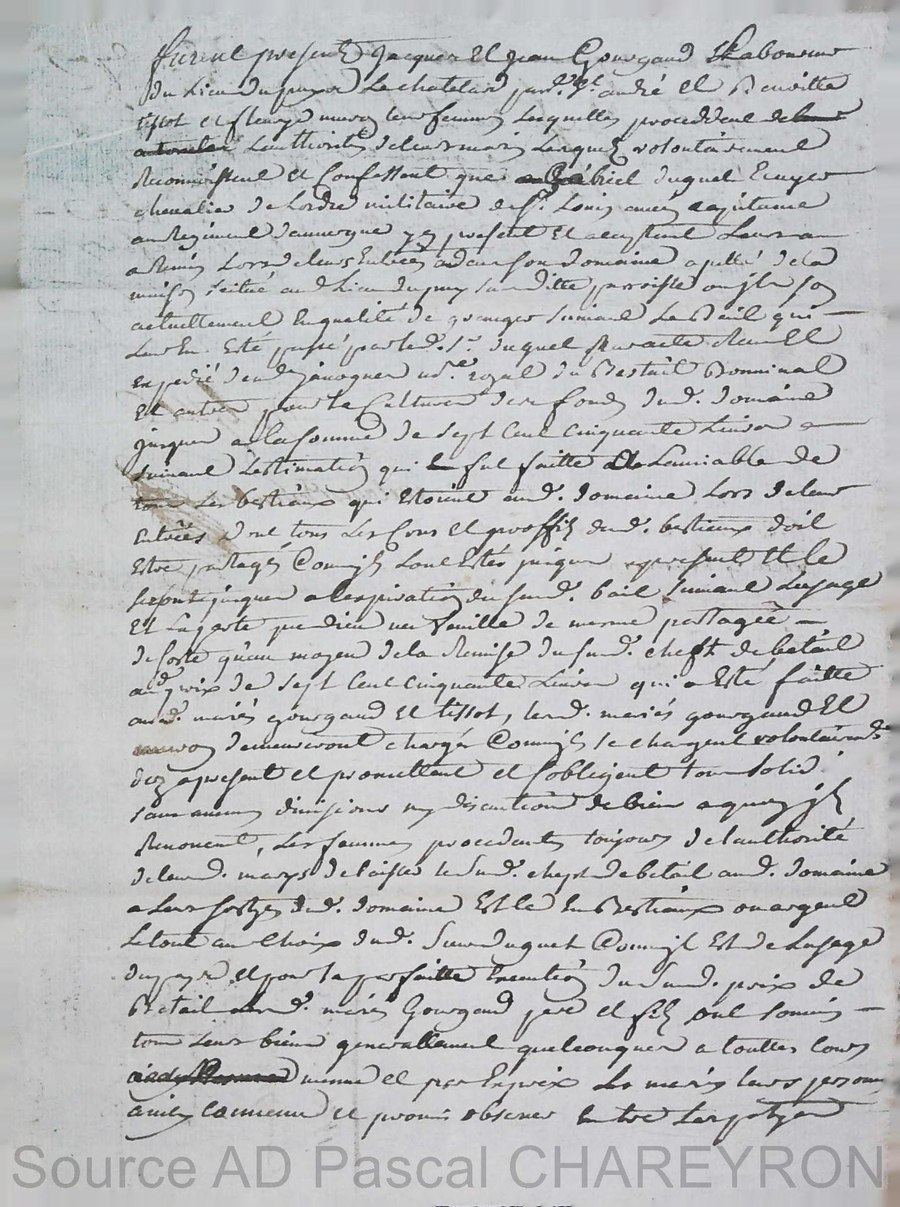 furent presents Jacques et Jean Gourgaud laboureur
du Lieu du puy Le chatelard par. St. andré et Benoitte
tissot et fleurye muron leur femmes Lesquelles procedent de leur
Lauthorité de leurs maris Lesquels volontairement
Reconnoissent et Confessent que Gabriel duguet Ecuyer
chevalier de Lordre militaire de St. Louis ancien capitaine
au Regiment dauvergne yci present et acceptant Leur a
a Remis Lors de leurs Entrées adans son domaine apellé de la
maison scitué aud. Lieu du puy susditte parroisse ou jls son
actuellement En qualité de granger suivant Le Bail qui
Leur En Esté passé par led. Sr. duguet par acte Receu Et
Expedié de md. janoguer no.re royal du Bestail Bovinal
Et autre pour la Culture des fonds dud. domaine
jusques a la somme de sept Cent Cinquante Livres
suivant Lestimation qui En fut faitte a Lamiable de
tous Les bestiaux qui Etoient aud. domaine Lors de leur
Entrées dont tous Les Crois et proffits dud. bestiaux doit
Estre partagés Comme jls Lont Estés jusques a present Et le
seront jusques a Lexpiration du susd. bail suivant Lusage
Et La perte que dieu ne Veuille de meme partagée
de sorte quau moyen de la Remise du susd. cheptel de betail
aud. prix de sept Cent Cinquante Livres qui a Esté faitte
aud. mariés gourgaud et tissot, lesd. mariés gourgaud Et
muron demeureront chargés Comme jls se chargent volontairemt.
dez a present et promettent et sobligent tous solid.
sans aucune divisions ny discution de biens a quoy jls
Renoncent, Les femmes procedantes toujours de lauthorité
de leurd. marys de laisser le susd. cheptel de betail aud. domaine
a Leur sortye dud. domaine Et ce En Bestiaux ou argent
Le tout au Choix dud. Sieur duguet Comme jl Est de Lusage
du pays et pour la parfaitte Execution du susd. prix de
Betail lesd. mariés Gourgaud pere et fils ont soumis
tous Leurs biens generallement quelconques a touttes Cours
meme et par Exprix Les maris leurs personnes
ainsy Convenu et promis observer Entre Les partyes
Source AD Pascal CHAREYRON